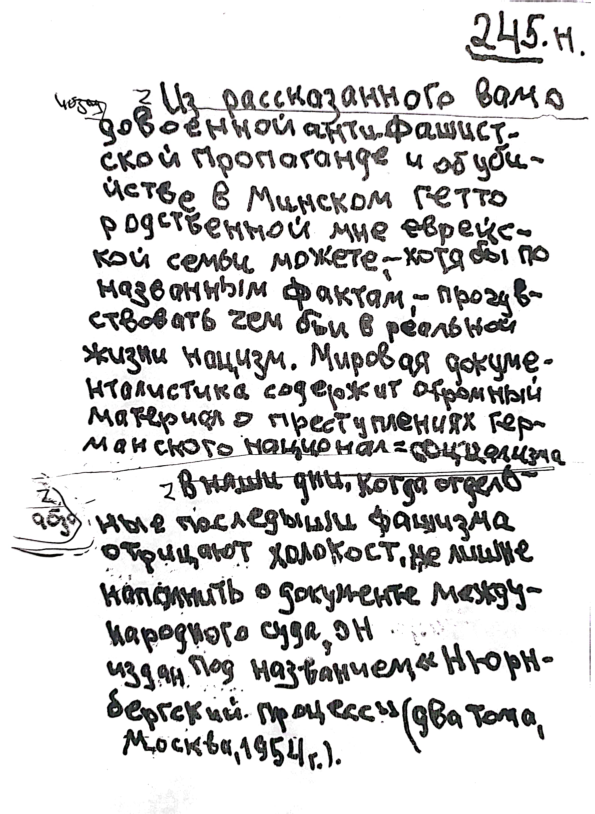 245.н.
Z Из рассказанного вам о
довоенной антифашист-
ской пропаганде и об уби-
йстве в Минском гетто
родственной мне еврейс-
кой семьи можете, – хотя бы по
названным фактам, – прочув-
ствовать чем был в реальной
жизни нацизм. Мировая докуме-
нталистика содержит огромный
материал о преступлениях гер-
манского национал=социализма
Z В наши дни, когда отдель-
Z
абзац
ные последыши фашизма
отрицают холокост, не лишне
напомнить о документе между-
народного суда, он
издан под названием «Нюрн-
бергский процесс» (два тома,
Москва, 1954 г.).